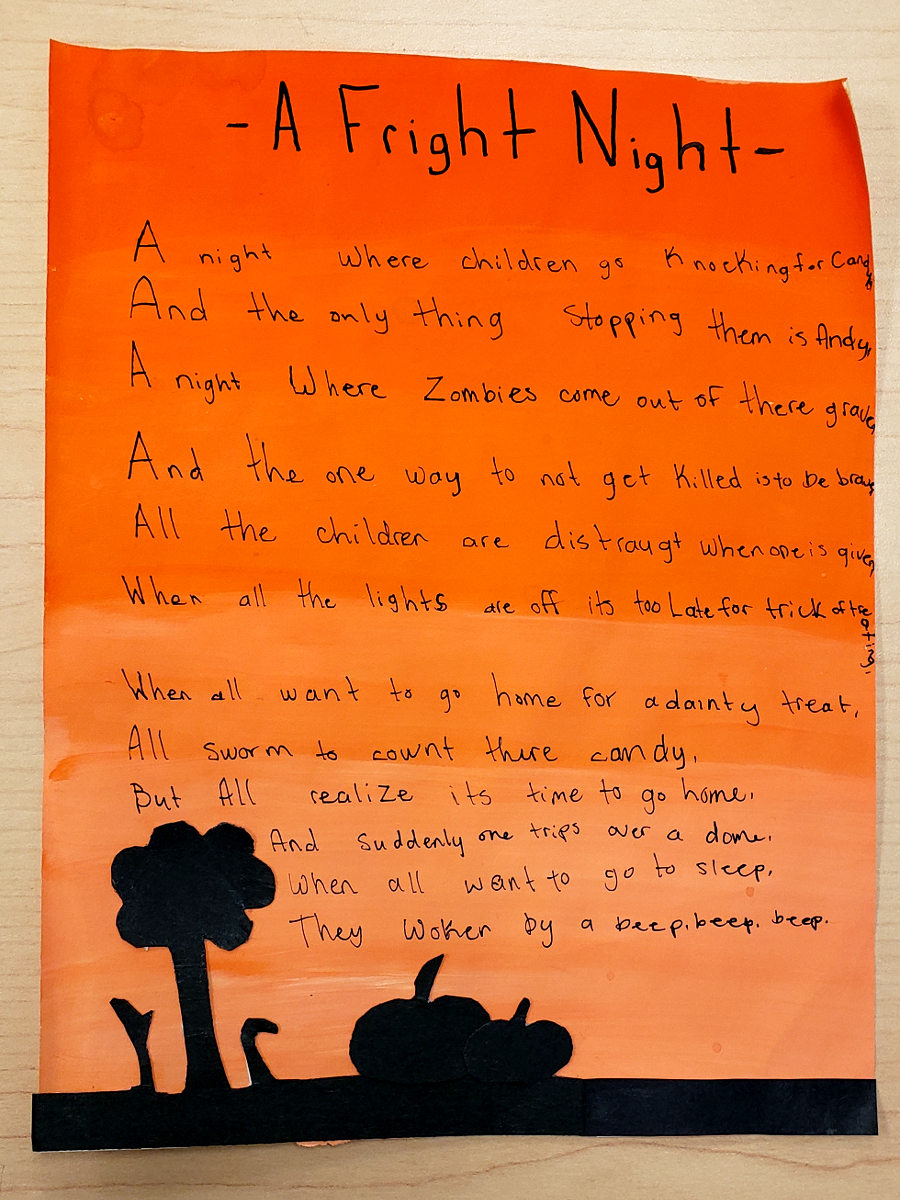 - A Fright Night -
A night where children go knocking for Candy
And the only thing stopping them is Andy,
A night Where Zombies come out of there graves
And the one way to not get killed is to be brave
All the children are distraugt when one is given
When all the lights are off its too Late for trick or treating.
When all want to go home for a dainty treat,
All sworm to count there candy.
But All realize its time to go home.
And suddenly one trips over a dome.
When all want to go to sleep,
They woken by a beep. beep. beep.